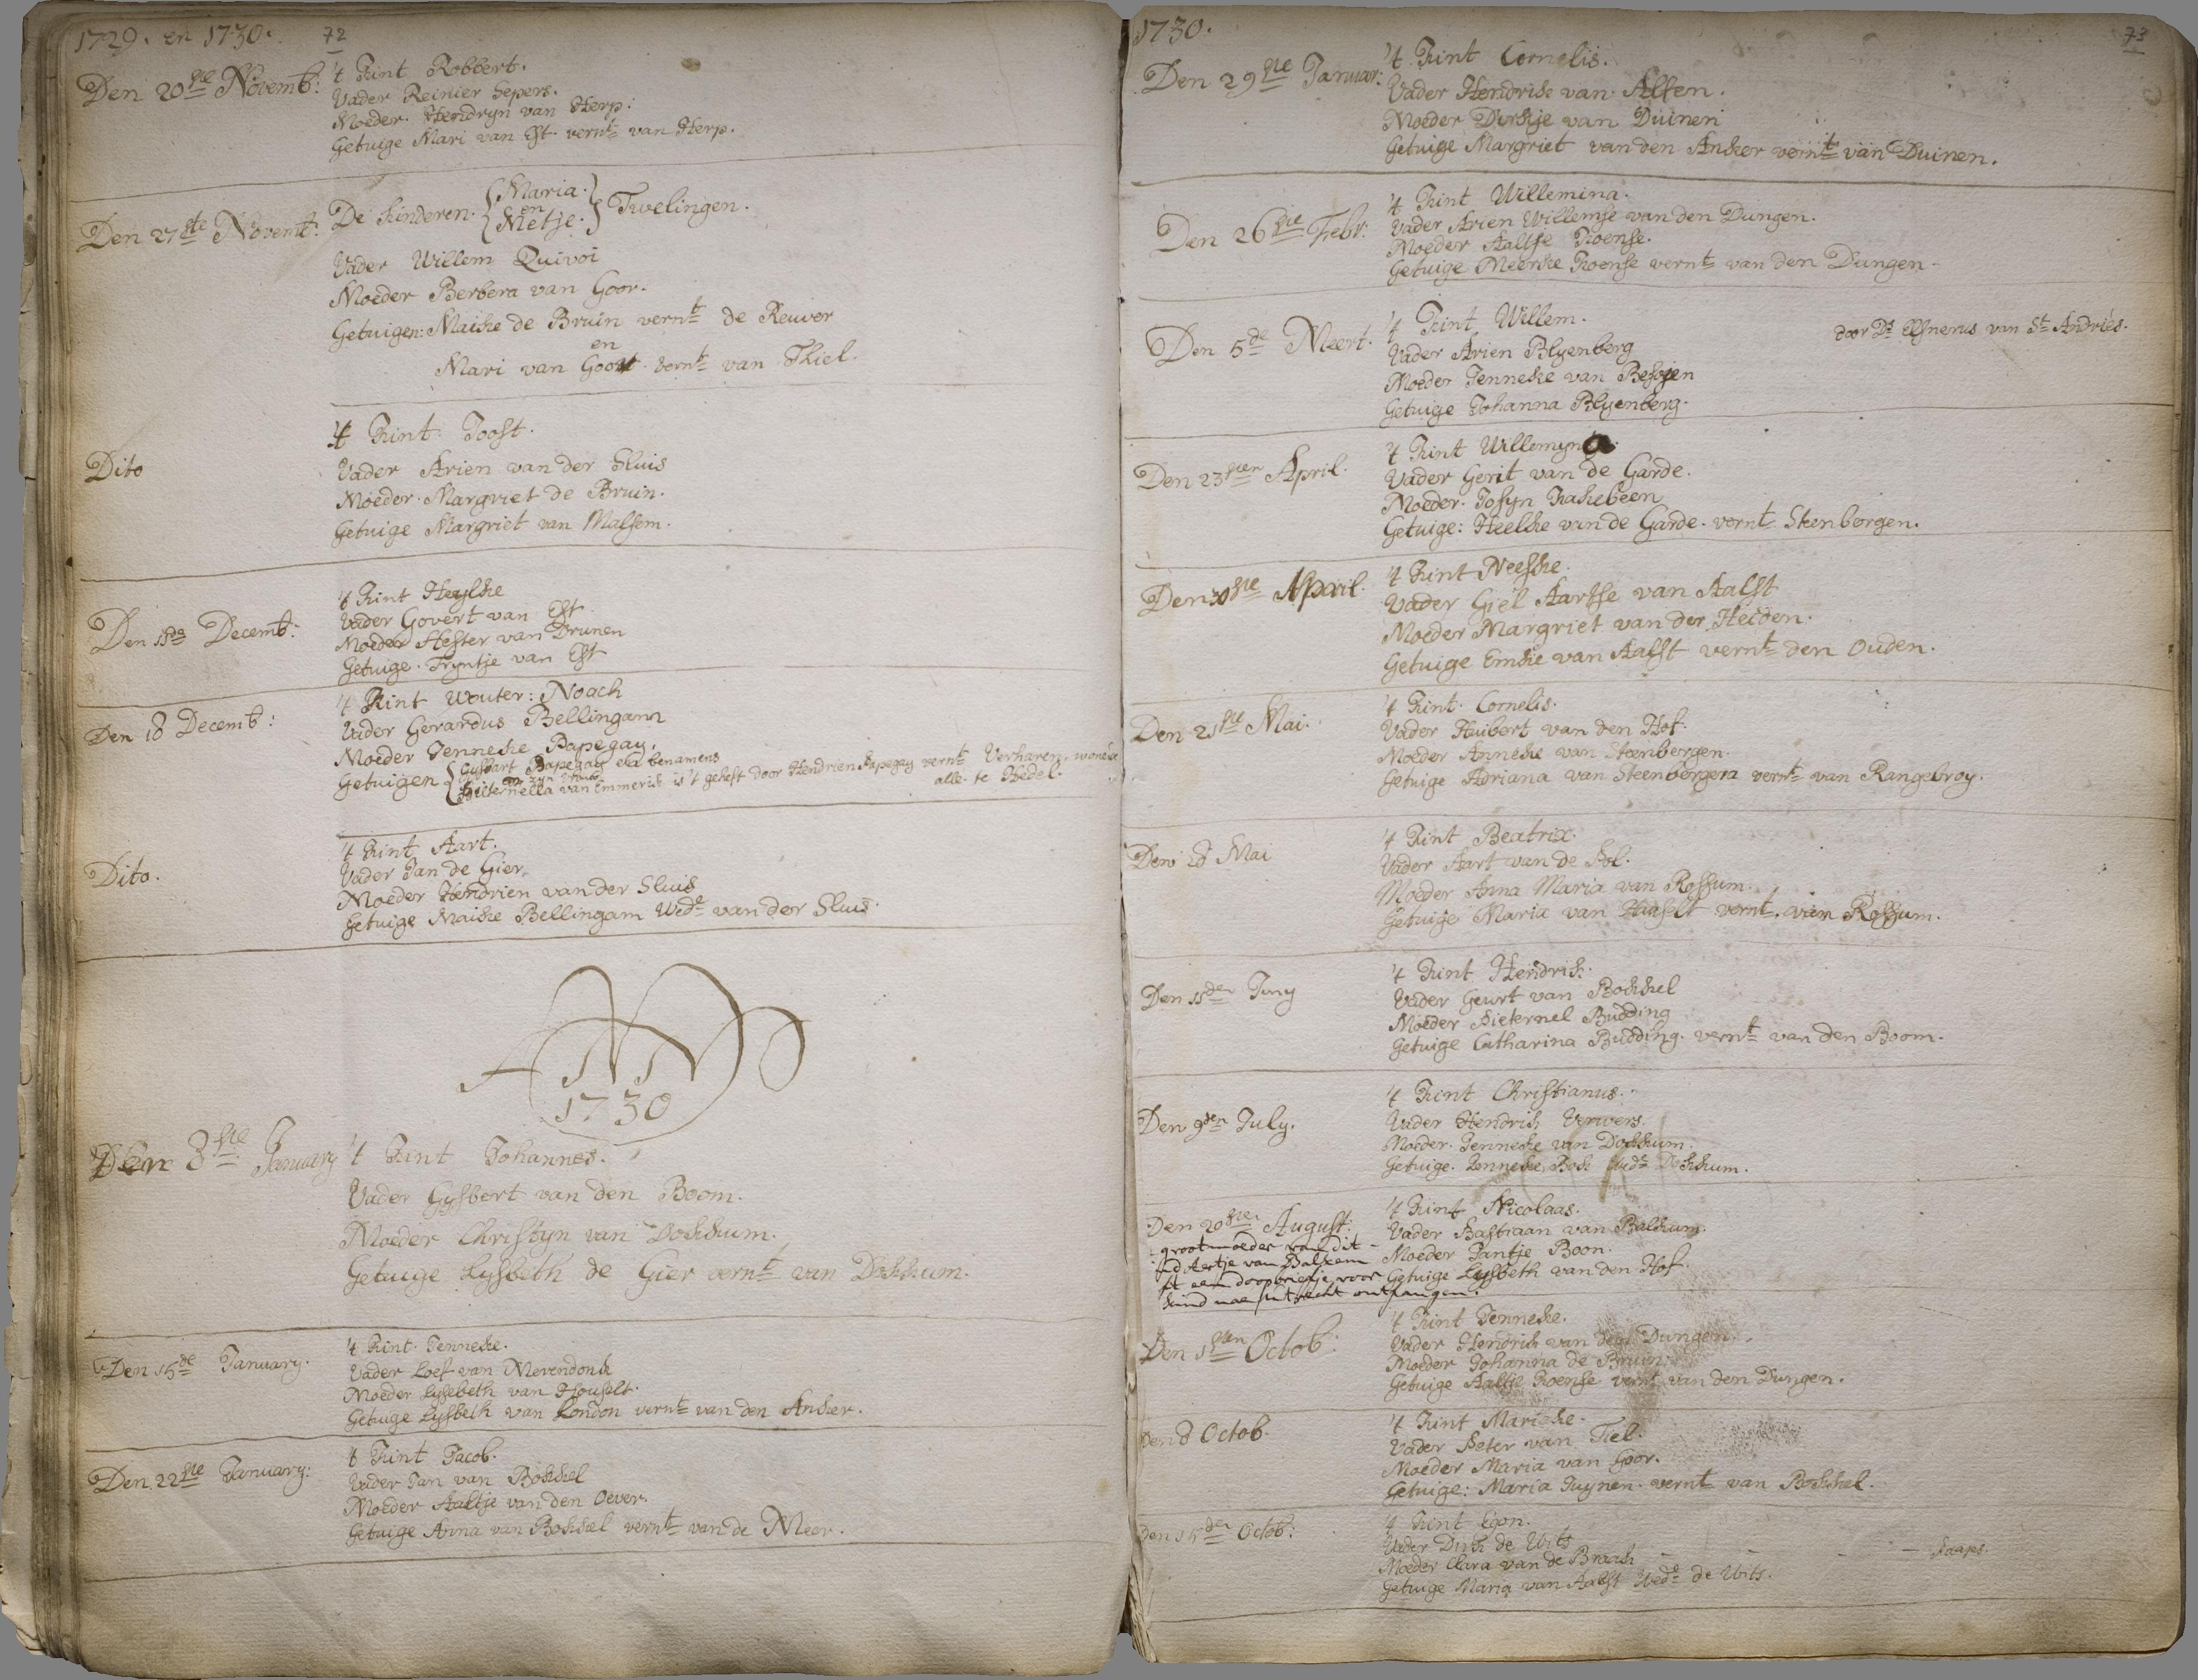 1729. en 1730. 72
Den 20ste Novemb:
't Kint Robbert.
Vader Reinier Sepers.
Moeder. Hendryn van Herp.
Getuige Mari van Est. vernt van Herp.
Den 27ste Novemb:
De Kinderen. {Maria. en Metje.} Twelingen.
Vader Willem Quivoi
Moeder Berbera van Goor.
Getuigen: Maike de Bruin vernt de Reuver
en
Mari van Goor vernt van Thiel.
Dito
't Kint. Joost.
Vader Arien van der Sluis
Moeder. Margriet de Bruin.
Getuige Margriet van Malsem.
Den Decemb:
't Kint Heylke
Vader Govert van Est
Moeder Hester van Drunen
Getuige. Tryntje van Est
Den 18 Decemb:
't Kint Wouter: Noach
Vader Gerardus Bellingam
Moeder Jenneke Papegay.
Getuigen {Gysbart Papegay benamens
en zyn vrouw
Pieternella van Emmerik is 't geheft door Hendrien Papegay vernt Verharen, 
alle te Hedel.
Dito.
't Kint Aart.
Vader Jan de Gier.
Moeder Hendrien van der Sluis
Getuige Maike Bellingam Wede van der Sluis.
ANNO
1730
Den 8ste January
't Kint Johannes.
Vader Gysbert van den Boom.
Moeder Christyn van Dokkum.
Getuige Lysbeth de Gier vernt van Dokkum.
Den 15de January.
't Kint. Jenneke.
Vader Loef van Merendonk
Moeder Lysebeth van Houselt.
Getuige Lysbeth van London vernt van den Anker.
Den 22ste January:
't Kint Jacob.
Vader Jan van Bokkel
Moeder Aaltje van den Oever.
Getuige Anna van Bokkel vernt van de Meer.
1730. 73
Den 29ste Januar:
't Kint Cornelis.
Vader Hendrik van Alfen.
Moeder Dirkje van Duinen
Getuige Margriet van den Anker vernt van Duinen.
Den 26ste Febr:
't Kint Willemina.
Vader Arien Willemse van den Dungen.
Moeder Aaltje Koense.
Getuige Meerke Koense vernt van den Dungen.
Den 5de Meert.
't Kint Willem. door Ds Elsnerus van St Andries.
Vader Arien Blyenberg
Moeder Jenneke van Bessjen
Getuige Johanna Blyenberg.
Den 23sten April.
't Kint Willemyna.
Vader Gerit van de Garde.
Moeder. Josyn Kakebeen
Getuige: Heelke van de Garde. vernt Steenbergen.
Den 30ste April.
't Kint Neeske.
Vader Giel Aartse van Aalst
Moeder Margriet van der Heiden.
Getuige Emke van Aalst vernt den Ouden.
Den 21ste Mai.
't Kint. Cornelis.
Vader Huibert van den Hof.
Moeder Anneke van Steenbergen.
Getuige Adriana van Steenbergen vernt van Rangebroy.
Den 28 Mai
't Kint Beatrix.
Vader Aart van de Pol.
Moeder Anna Maria van Rossum.
Getuige Maria van Haaselt vernt. van Rossum.
Den 11den Juny
't Kint Hendrik.
Vader Geurt van Bokkel
Moeder Pieternel Budding
Getuige Catharina Budding. vernt van den Boom.
Den 9den July.
't Kint Christianus.
Vader Hendrik Verwers.
Moeder. Jenneke van Dokkum.
Getuige. Jenneke Bok Wede Dokkum.
Den 20sten August:
grootmoeder van dit
Aertje van Balkem
een doopbriefje voor
kind nae Utrecht ontfangen.
't Kint Nicolaas.
Vader Bastiaan van Balkum.
Moeder Jantje Boon.
Getuige Lysbeth van den Hof.
Den 1sten Octob:
't Kint Jenneke.
Vader Hendrik van den Dungen.
Moeder Johanna de Bruin.
Getuige Aaltje Koense vernt van den Dungen.
Den 8 Octob.
't Kint Marieke.
Vader Peter van Tiel.
Moeder Maria van Goor.
Getuige: Maria Tuynen. vernt van Bokkel.
Den 15den Octob:
't Kint Leon.
Vader Dirk de Wits
Moeder Clara van de Braak — — — — Paaps.
Getuige Maria van Aalst Wede de Wits.